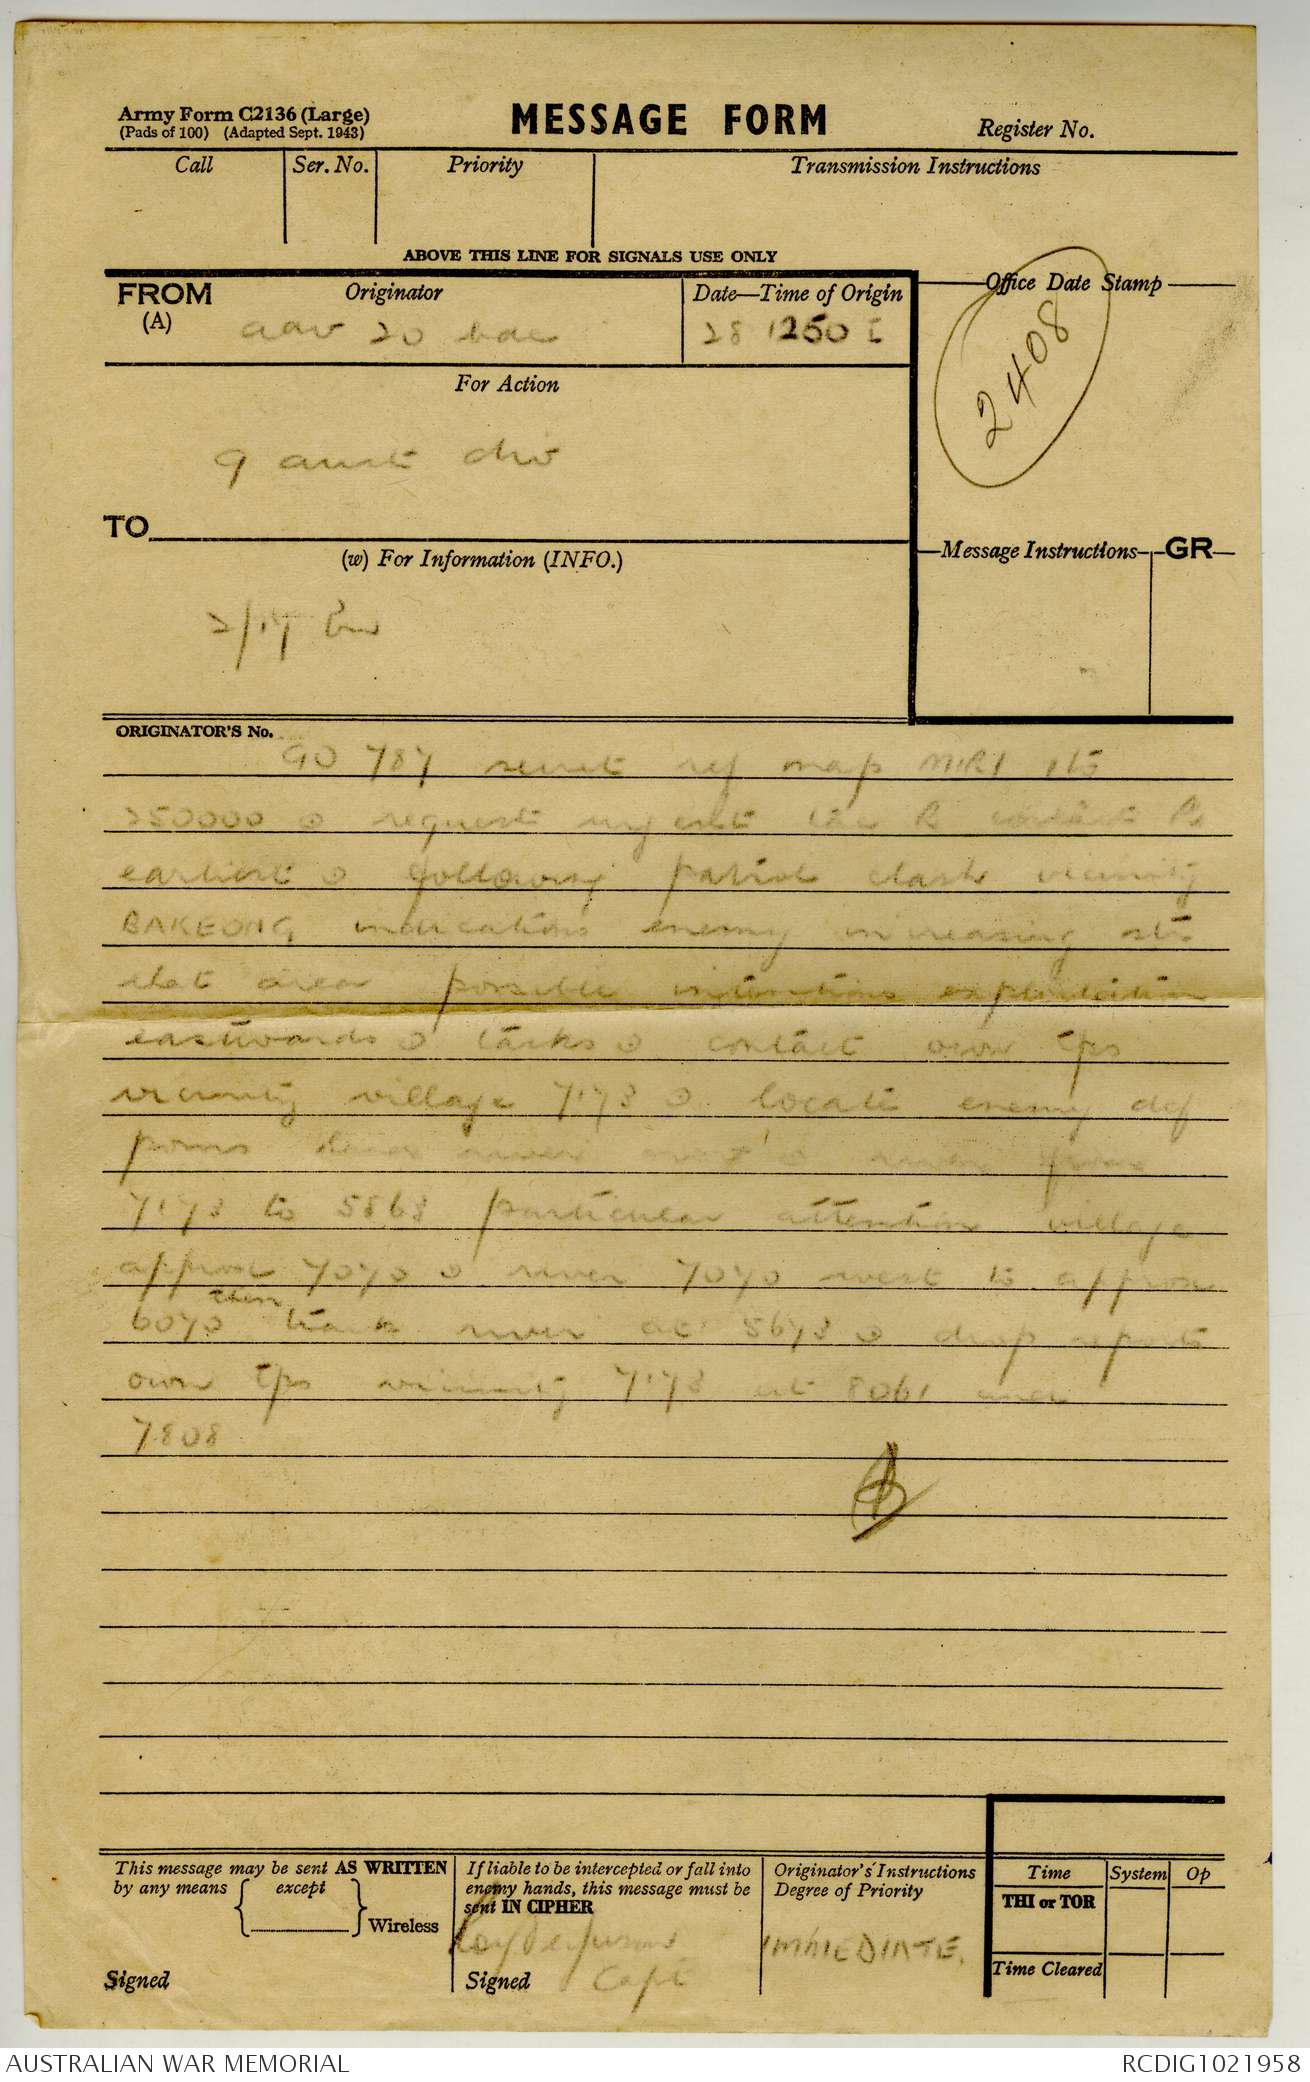 Army Form C2136 (Large)
(Pads of 100) (Adapted Sept. 1943)
MESSAGE FORM
Register No.
Call
Ser. No.
Priority
Transmission Instructions
ABOVE THIS LINE FOR SIGNALS USE ONLY
FROM
(A)
Originator
adv 20 bde
Date—Time of Origin
28 1250 I
Office Date Stamp
2408
For Action
9 aust div
TO
(w) For Information (INFO.)
2/17 Bn
Message Instructions
GR
ORIGINATOR'S No.
GO 787 secret ref map MIRI 1 to
250000 o request urgent tac R contact R
earliest o following patrol clash vicinity
BAKEONG indications enemy increasing str
that area possible intentions exploitation
eastwards o tasks o contact own tps
vicinity village 7173 o locate enemy def
posns river river from
7173 to 5868 particular attention village
approx 7070 o river 7070 west to approx
6070 then track river at 5673 o drop reports
own tps vicinity 7173 at 8061
7808
This message may be sent AS WRITTEN
by any means except
Wireless
Signed
If liable to be intercepted or fall into
enemy hands, this message must be
sent IN CIPHER
Signed Capt
Originator's Instructions
Degree of Priority
IMMEDIATE.
Time
System
Op
THI or TOR
Time Cleared
AUSTRALIAN WAR MEMORIAL
RCDIG1021958